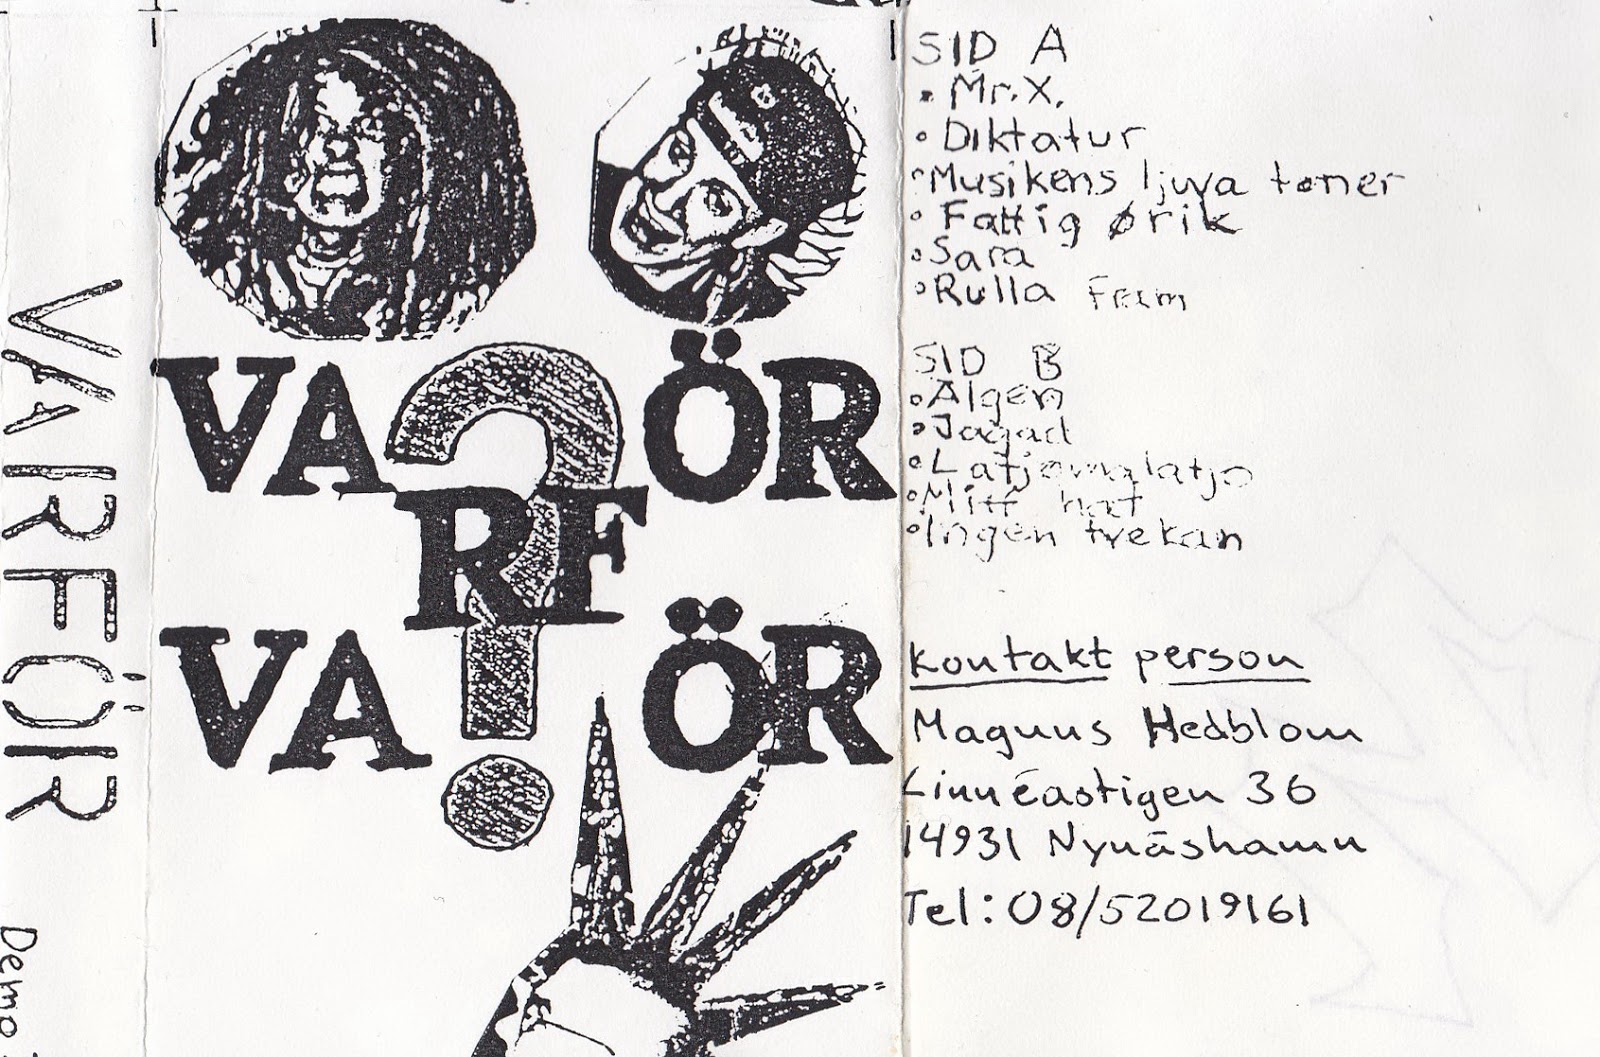 VARFÖR
Demo
VA ÖR
RF
VA ÖR
?
SID A
• Mr. X.
• Diktatur
• Musikens ljuva toner
• Fattig ørik
• Sara
• Rulla Fram
SID B
• Älgen
• Jagad
• Latjomalatjo
• Mitt hat
• Ingen tvekan
Kontakt person
Magnus Hedblom
Linnéastigen 36
14931 Nynäshamn
Tel: 08/52019161